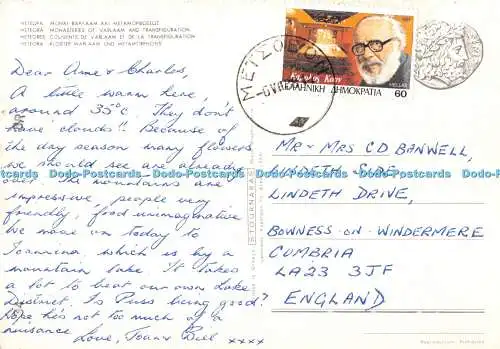 ΜΕΤΕΩΡΑ ΜΟΝΑΙ ΒΑΡΛΑΑΜ ΚΑΙ ΜΕΤΑΜΟΡΦΩΣΕΩΣ
METEORA MONASTERIES OF VARLAAM AND TRANSFIGURATION
METEORES COUVENTS DE VARLAAM ET DE LA TRANSFIGURATION
METEORA KLOSTER WARLAAM UND METAMORPHOSIS
Dear Anne & Charles,
A little warm here
around 35°C. They don't
have clouds!! Because of
the day season many flowers
we should see are already
over. The mountains are
impressive, people very
friendly, food unimaginative
We move on today to
Ioannina, which is by a
mountain lake. It takes
a lot to beat our own Lake
District. Is Puss being good?
Hope he's not too much of a
nuisance.
Love, Joan & Bill xxxx
ΜΕΤΣΟΒΟΝ
Κάρολος Κουν
HELLAS
ΕΛΛΗΝΙΚΗ ΔΗΜΟΚΡΑΤΙΑ 60
MR & MRS CD BANWELL,
LINDETH SIDE,
LINDETH DRIVE,
BOWNESS-ON-WINDERMERE
CUMBRIA
LA23 3JF
ENGLAND
Dodo-Postcards Dodo-Postcards Dodo-Postcards Dodo-Postcards